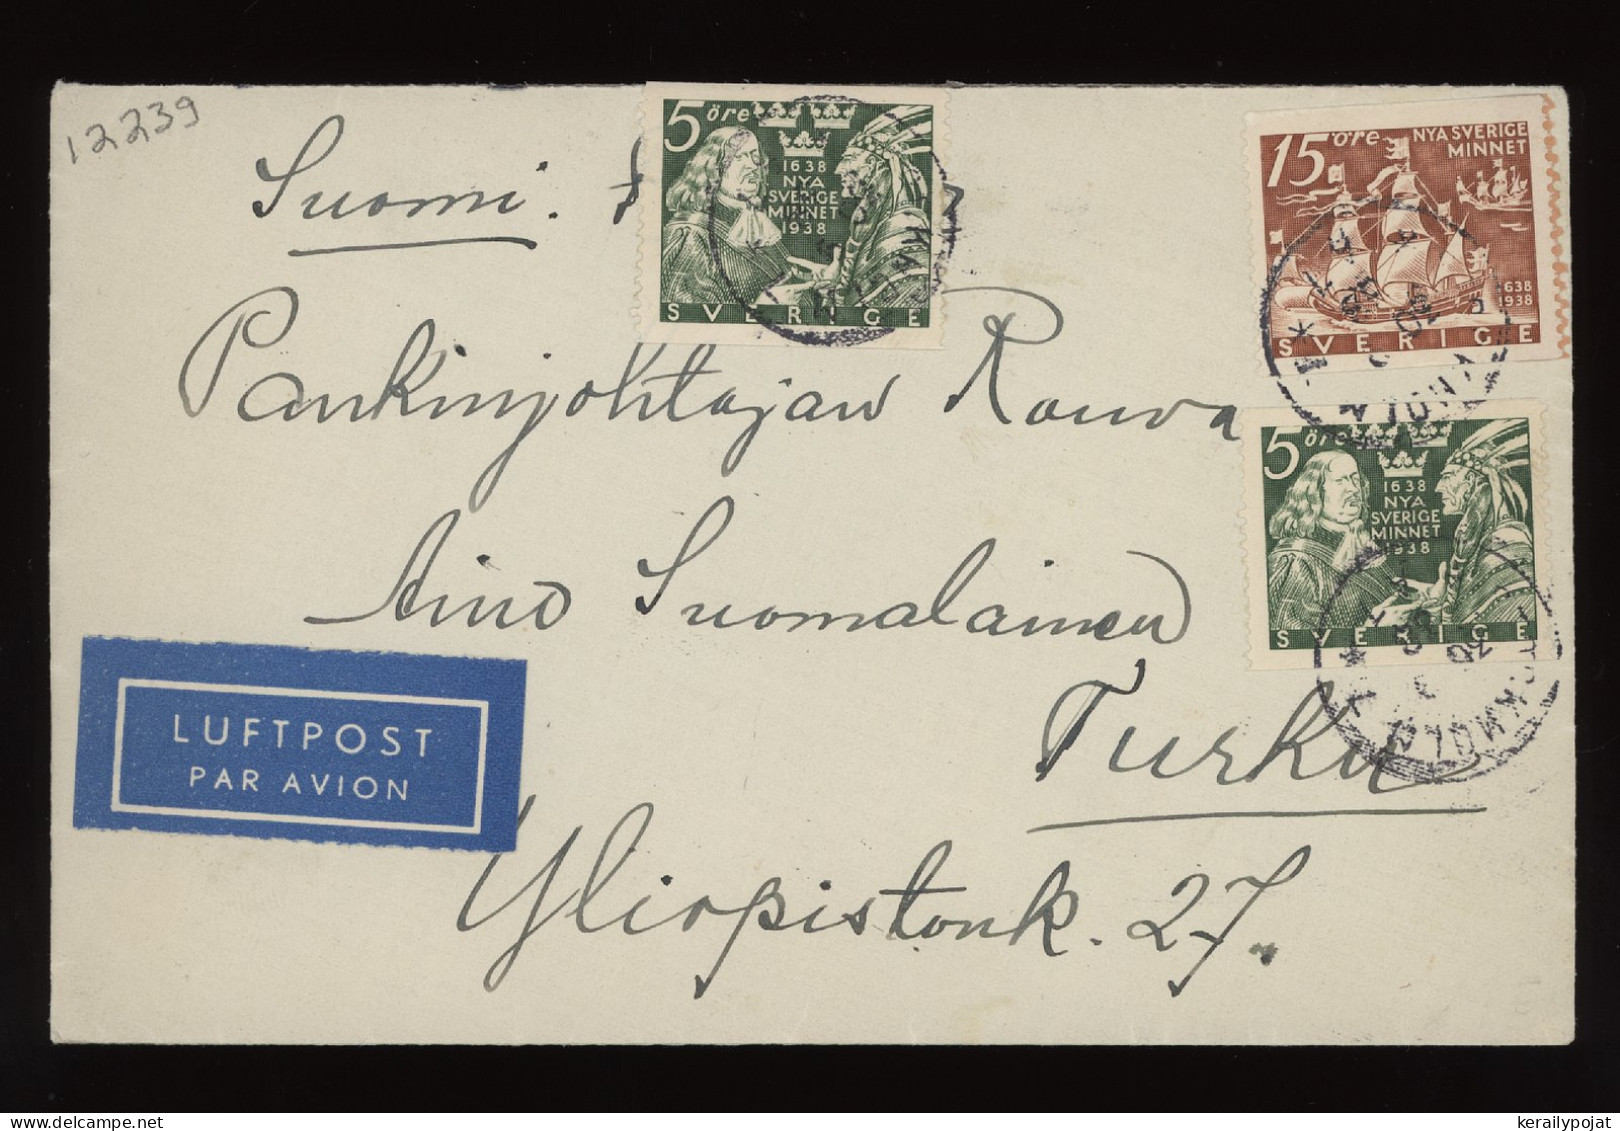 12239
Suomi.
Pankinjohtajan Rouva
Aino Suomalainen
Turku
Yliopistonk. 27.
LUFTPOST
PAR AVION
5 öre
1638
NYA
SVERIGE
MINNET
1938
SVERIGE
15 öre NYA SVERIGE
MINNET
1638
1938
SVERIGE
5 öre
1638
NYA
SVERIGE
MINNET
1938
SVERIGE
kerailypojat